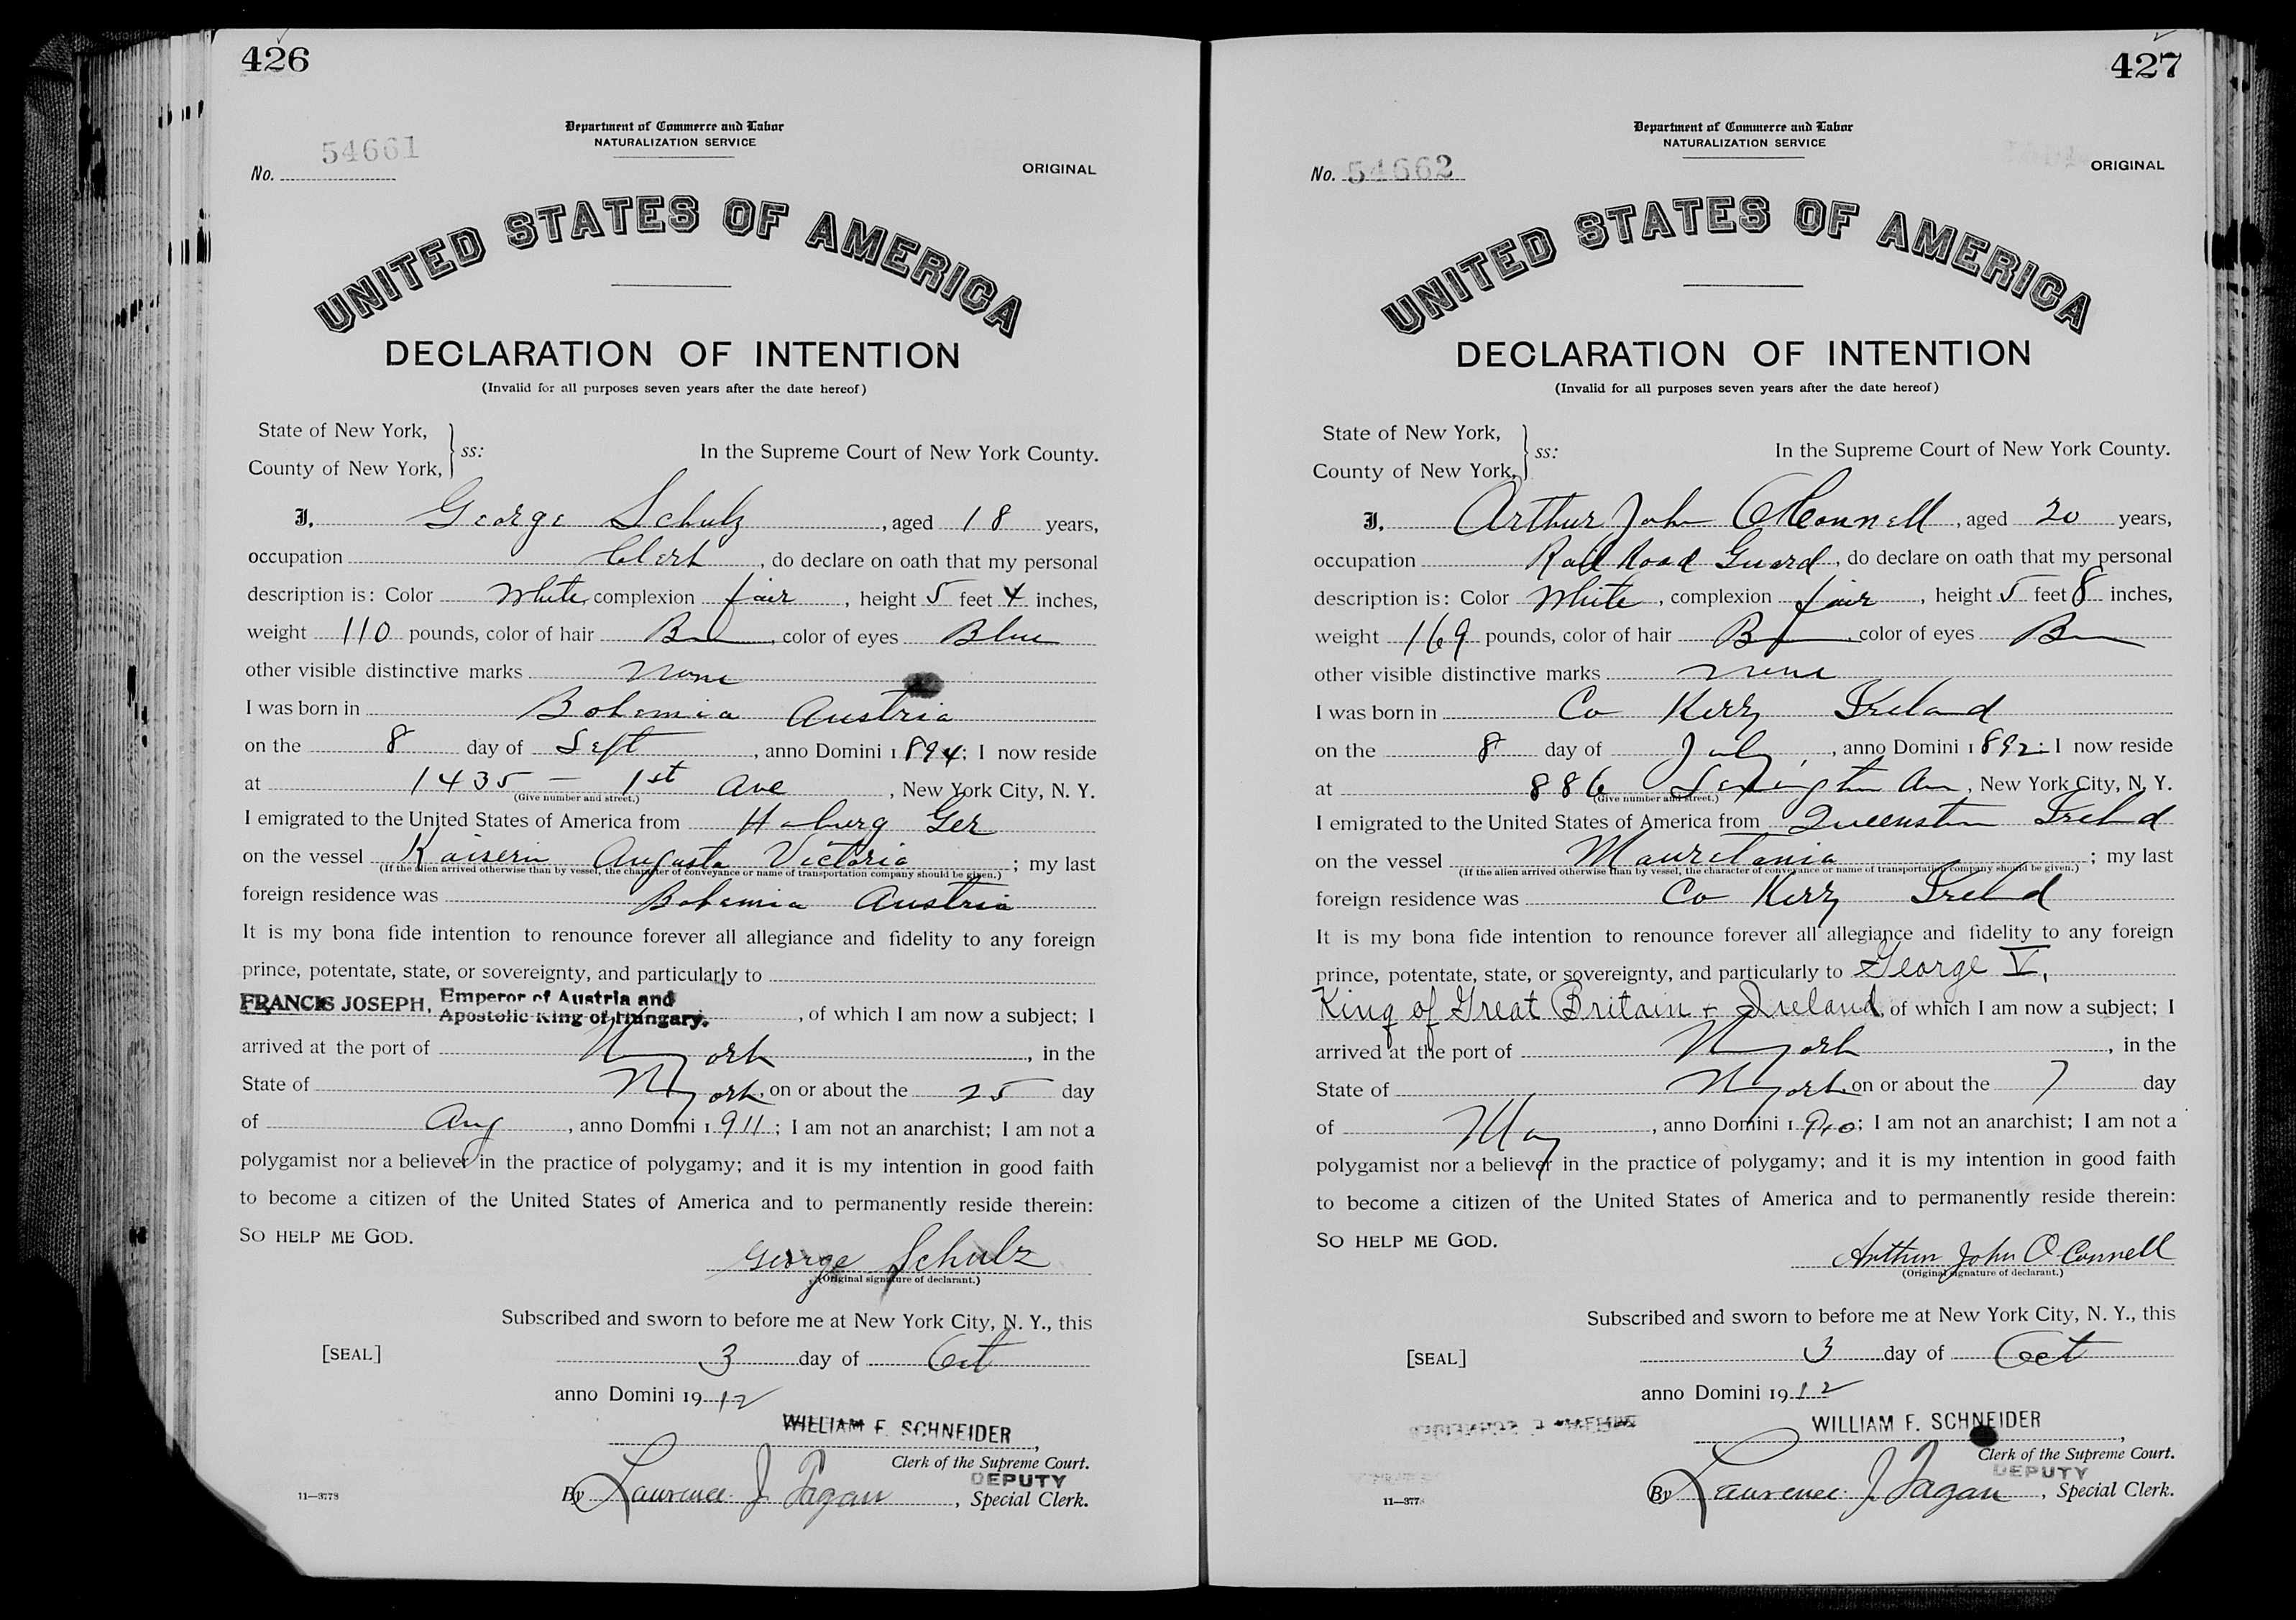 426
Department of Commerce and Labor
NATURALIZATION SERVICE
No. 54661
ORIGINAL
UNITED STATES OF AMERICA
DECLARATION OF INTENTION
(Invalid for all purposes seven years after the date hereof)
State of New York,
County of New York, } ss:
In the Supreme Court of New York County.
I, George Schulz, aged 18 years,
occupation Clerk, do declare on oath that my personal
description is: Color White, complexion fair, height 5 feet 4 inches,
weight 110 pounds, color of hair Bn, color of eyes Blue
other visible distinctive marks none
I was born in Bohemia Austria
on the 8 day of Sept, anno Domini 1894; I now reside
at 1435 - 1st Ave, New York City, N. Y.
(Give number and street.)
I emigrated to the United States of America from Hburg Ger
on the vessel Kaiserin Augusta Victoria; my last
(If the alien arrived otherwise than by vessel, the character of conveyance or name of transportation company should be given.)
foreign residence was Bohemia Austria
It is my bona fide intention to renounce forever all allegiance and fidelity to any foreign
prince, potentate, state, or sovereignty, and particularly to
FRANCIS JOSEPH, Emperor of Austria and Apostolic King of Hungary., of which I am now a subject; I
arrived at the port of N York, in the
State of N York, on or about the 25 day
of Aug, anno Domini 1911; I am not an anarchist; I am not a
polygamist nor a believer in the practice of polygamy; and it is my intention in good faith
to become a citizen of the United States of America and to permanently reside therein:
SO HELP ME GOD.
George Schulz
(Original signature of declarant.)
Subscribed and sworn to before me at New York City, N. Y., this
[SEAL]
3 day of Oct
anno Domini 1912
WILLIAM F. SCHNEIDER,
Clerk of the Supreme Court.
DEPUTY
By Laurence J. Fagan, Special Clerk.
11—3778
427
Department of Commerce and Labor
NATURALIZATION SERVICE
No. 54662
ORIGINAL
UNITED STATES OF AMERICA
DECLARATION OF INTENTION
(Invalid for all purposes seven years after the date hereof)
State of New York,
County of New York, } ss:
In the Supreme Court of New York County.
I, Arthur John O'Connell, aged 20 years,
occupation Rail Road Guard, do declare on oath that my personal
description is: Color White, complexion fair, height 5 feet 8 inches,
weight 169 pounds, color of hair Bn, color of eyes Bn
other visible distinctive marks none
I was born in Co Kerry Ireland
on the 8 day of July, anno Domini 1892; I now reside
at 886 Lexington Av, New York City, N. Y.
(Give number and street.)
I emigrated to the United States of America from Queenstn Irelnd
on the vessel Mauretania; my last
(If the alien arrived otherwise than by vessel, the character of conveyance or name of transportation company should be given.)
foreign residence was Co Kerry Irelnd
It is my bona fide intention to renounce forever all allegiance and fidelity to any foreign
prince, potentate, state, or sovereignty, and particularly to George V,
King of Great Britain + Ireland, of which I am now a subject; I
arrived at the port of N York, in the
State of N York, on or about the 7 day
of May, anno Domini 1910; I am not an anarchist; I am not a
polygamist nor a believer in the practice of polygamy; and it is my intention in good faith
to become a citizen of the United States of America and to permanently reside therein:
SO HELP ME GOD.
Arthur John O'Connell
(Original signature of declarant.)
Subscribed and sworn to before me at New York City, N. Y., this
[SEAL]
3 day of Oct
anno Domini 1912
WILLIAM F. SCHNEIDER,
Clerk of the Supreme Court.
DEPUTY
By Laurence J. Fagan, Special Clerk.
11—377